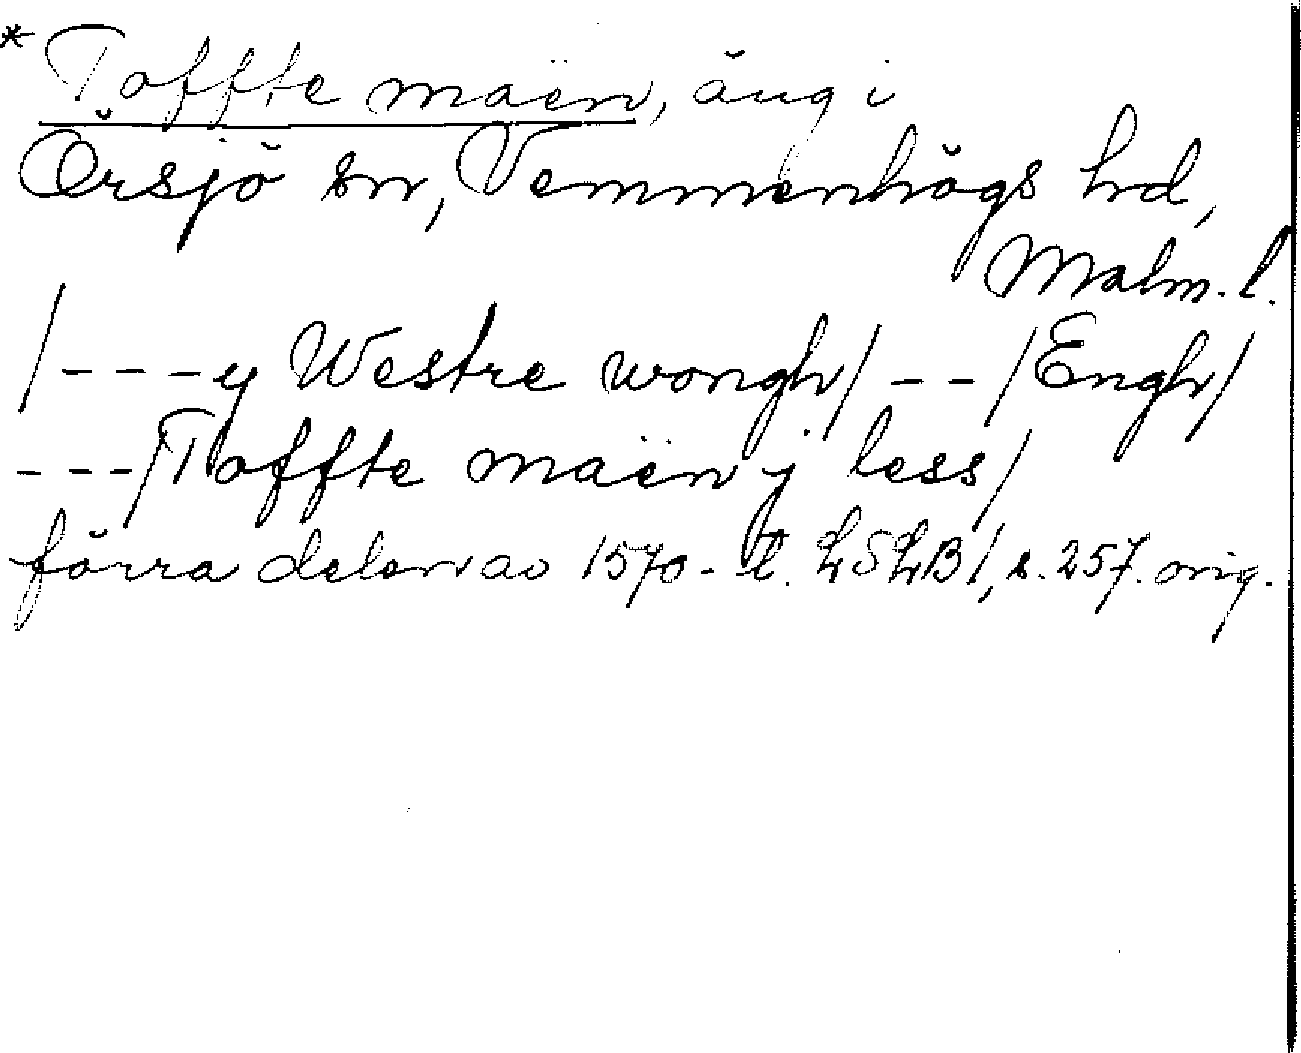 * Toffte maen, äng i
Örsjö sn, Vemmenhögs hd,
Malm. l.
/---y Westre wongh/--/Engh/
---/Toffte maen y less/
förra delen av 1570-t. LSLB1, s. 257. orig.